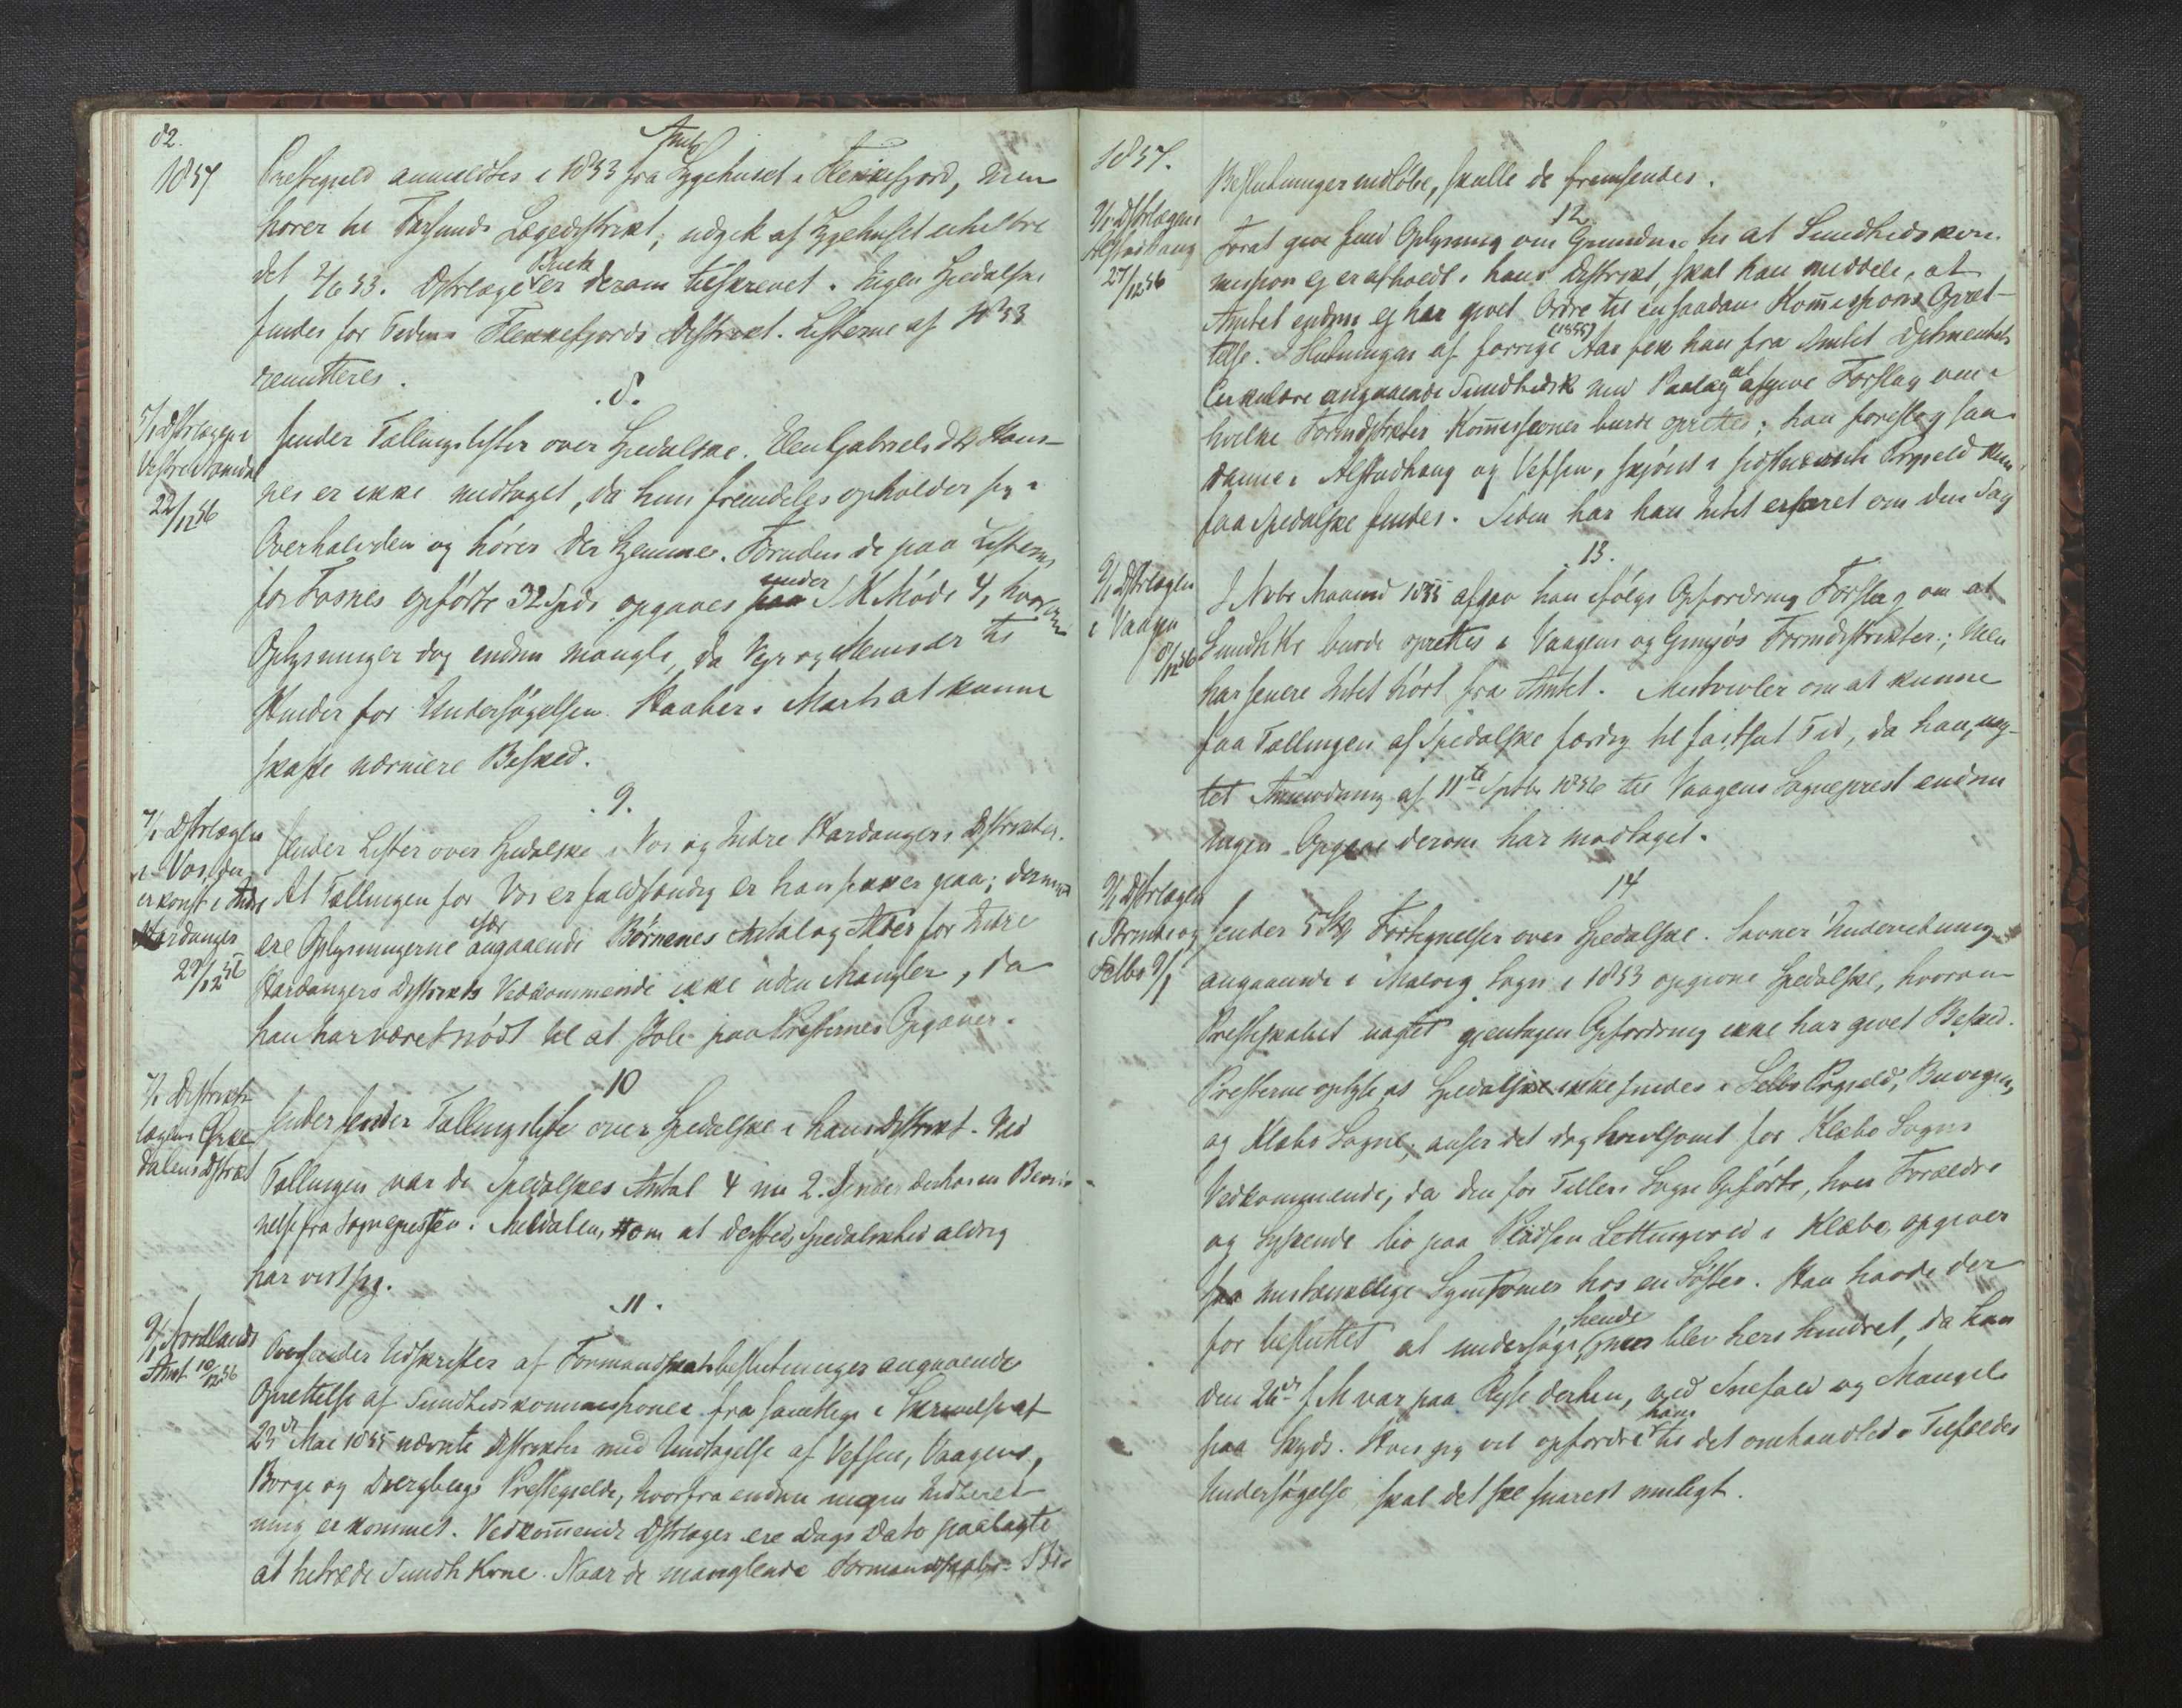 82.
1857
Præstegjeld anmeldtes i 1853 fra Amts Sygehuset i Flekkefjord, men
hører til Farsunds Lægedistrikt, udgik af Sygehuset uhelbre
det 2/6 53. Dstrlæge Buch er derom tilskrevet. Ingen Spedalske
findes for Tiden i Flekkefjords Distrikt. Listerne af 1853
remitteres.
8.
5/1 Dstrlægen
Vestre Namdal
22/12 56
Sender Tællingslister over Spedalske. Elen Gabrielsdtr Hans-
nes er ikke medtaget, da hun fremdeles opholder sig i
Overhalvden og hører der hjemme. Foruden de paa Listerne
for Fosnes opførte 32 Spds opgaves under S K Møde 4, hvorom
Oplysninger dog endnu mangle, da Veir og Menser til
Hinder for Undersøgelsen. Haaber i Marts at kunne
skaffe nærmere Besked.
9.
7/1 Dstrlægen
i Vos, der
er konst. i Indre
Hardanger
29/12 56
Sender Lister over Spedalske i Vos og Indre Hardangers Distrikter.
At Tællingen for Vos er fuldstændig er han sikker paa; derimod
ere Oplysningerne især angaaende Børnenes Antal og Alder for Indre
Hardangers Distrikts Vedkommende ikke uden Mangler, da
han har været nødt til at stole paa Præsternes Opgaver.
10
7/1 Distrikts
lægen Orke
dalens Dstrikt
Sender Tællingsliste over Spedalske i hans Distrikt. Ved
Tællingen var de Spedalskes Antal 4 nu 2. Sender derhos en Bevid-
nelse fra Sognepresten i Meldalen, om at dersteds Spedalskhed aldrig
har vist sig.
11.
9/1 Nordlands
Amt 10/12 56
Oversender Udskrifter af Formandskabsbeslutninger angaaende
Oprettelse af Sundhedskommissioner fra samtlige i Skrivelse af
23de Mai 1855 nævnte Distrikter med Undtagelse af Vefsen, Vaagens,
Borge og Dverbergs Præstegjelde, hvorfra endnu ingen Indberet
ning er kommet. Vedkommende Dstrlæger ere Dags Dato paalagte
at tiltræde Sundh Kmne. Naar de manglende Formandskabs-Be-
1857.
Beslutninger indløbe, skulle de fremsendes.
12
9/1 Dstrlægen
Alstadhaug
27/12 56
Forat give fuld Oplysning om Grundene til at Sundhedskom-
mission ej er afholdt i hans Distrikt, skal han meddele, at
Amtet endnu ej har givet Ordre til en saadan Kommissions Opret-
telse. I Slutningen af forrige (1855) Aar fik han fra Amtet Dptmentets
Cirkulære angaaende Sundhedsk med Paalæg at afgive Forslag om i
hvilke Formdstrikter Kommissioner burde oprettes; han foreslog saa-
danne i Alstadhaug og Vefsen, skjønt i sidstnævnte Prgjeld kun
faa Spedalske findes. Siden har han Intet erfaret om den Sag
13.
9/1 Dstrlægen
i Vaagen
8/12 56
I Nvbr Maaned 1855 afgav han ifølge Opfordring Forslag om at
SundhKr burde oprettes i Vaagens og Gimsøs Formdistrikter; Men
har senere Intet hørt fra Amtet. Mistvivler om at kunne
faa Tællingen af Spedalske færdig til fastsat Tid, da han, uag-
tet Anmodning af 11te Sptbr 1856 til Vaagens Sogneprest endnu
ingen Opgave derom har modtaget.
14
9/1 Dstrlægen
i Strinde og
Selbo 2/1
Sender 5 Stk Fortegnelser over Spedalske. Savner Underretning
angaaende i Malvig Sogn i 1853 opgivne Spedalske, hvorom
Presteskabet uagtet gjentagen Opfordring ikke har givet Besked.
Presterne oplyse at Spedalske ikke findes i Selbo Prgjeld, Buvigen,
og Klæbo Sogne; anser det dog tvivlsomt for Klæbo Sogns
Vedkommende, da den for Tillers Sogn Opførte, hvis Forældre
og Syskende bo paa Pladsen Lettingsvold i Klæbo, opgiver
mistænkelige Symtomer hos en Søster. Han havde der
for besluttet at undersøge hende, men blev heri hindret, da han
den 26de f M var paa Reise derhen, ved Snefald og Mangel
paa Skyds. Hvis jeg vil opfordre ham til det omhandlede Tilfældes
Undersøgelse, skal det ske snarest muligt.